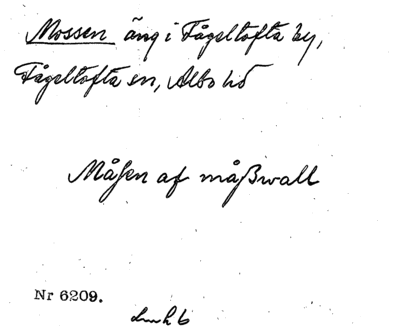 Mossen äng i Fågeltofta by,
Fågeltofta sn, Albo hd
Måßen af måßwall
Nr 6209.